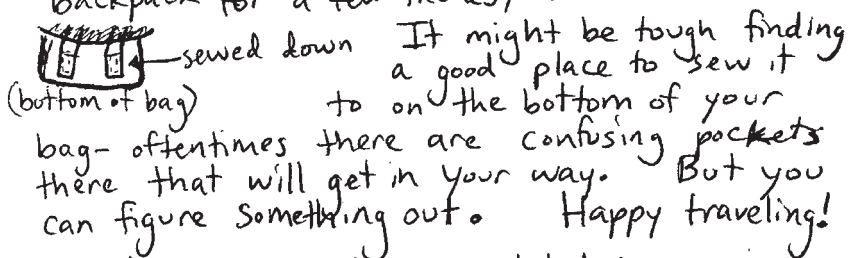 backpack for a few
sewed down
(bottom of bag)
It might be tough finding
a good place to sew it
to on the bottom of your
bag- oftentimes there are confusing pockets
there that will get in your way. But you
can figure something out. Happy traveling!